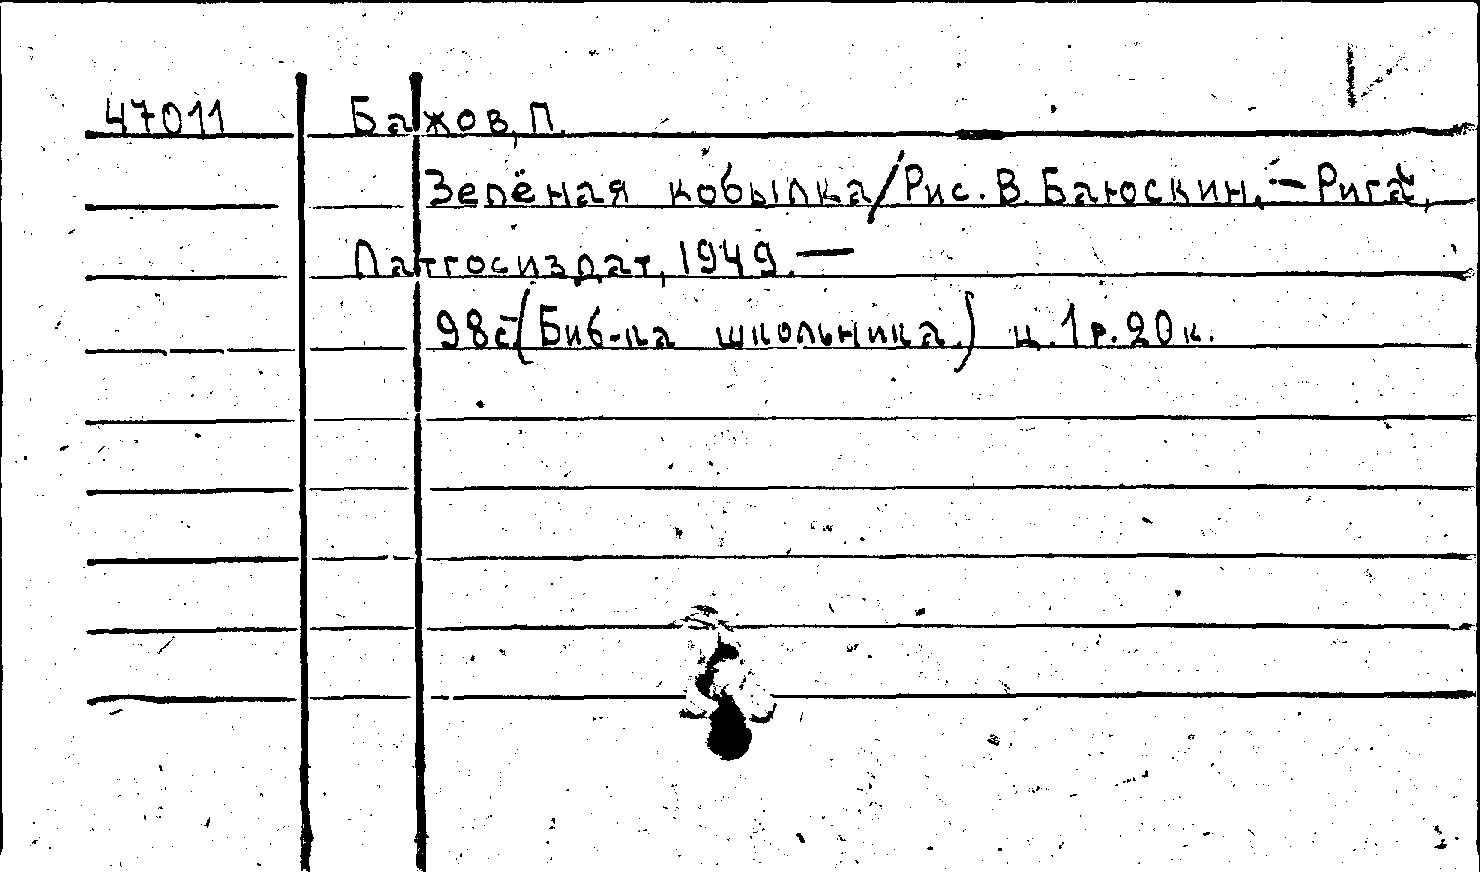 47011 Бажов, П.
Зелёная кобылка/Рис. В. Баюскин. - Рига,
Латгосиздат, 1949. —
98с (Биб-ка школьника.) ц. 1 р. 20 к.